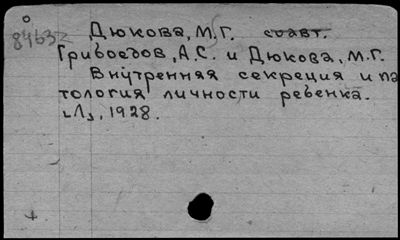 Дюкова, М.Г. соавт.
84632
Грибоедов, А.С. и Дюкова, М.Г.
Внутренняя секреция и па
тология личности ребенка.
Л, 1928.